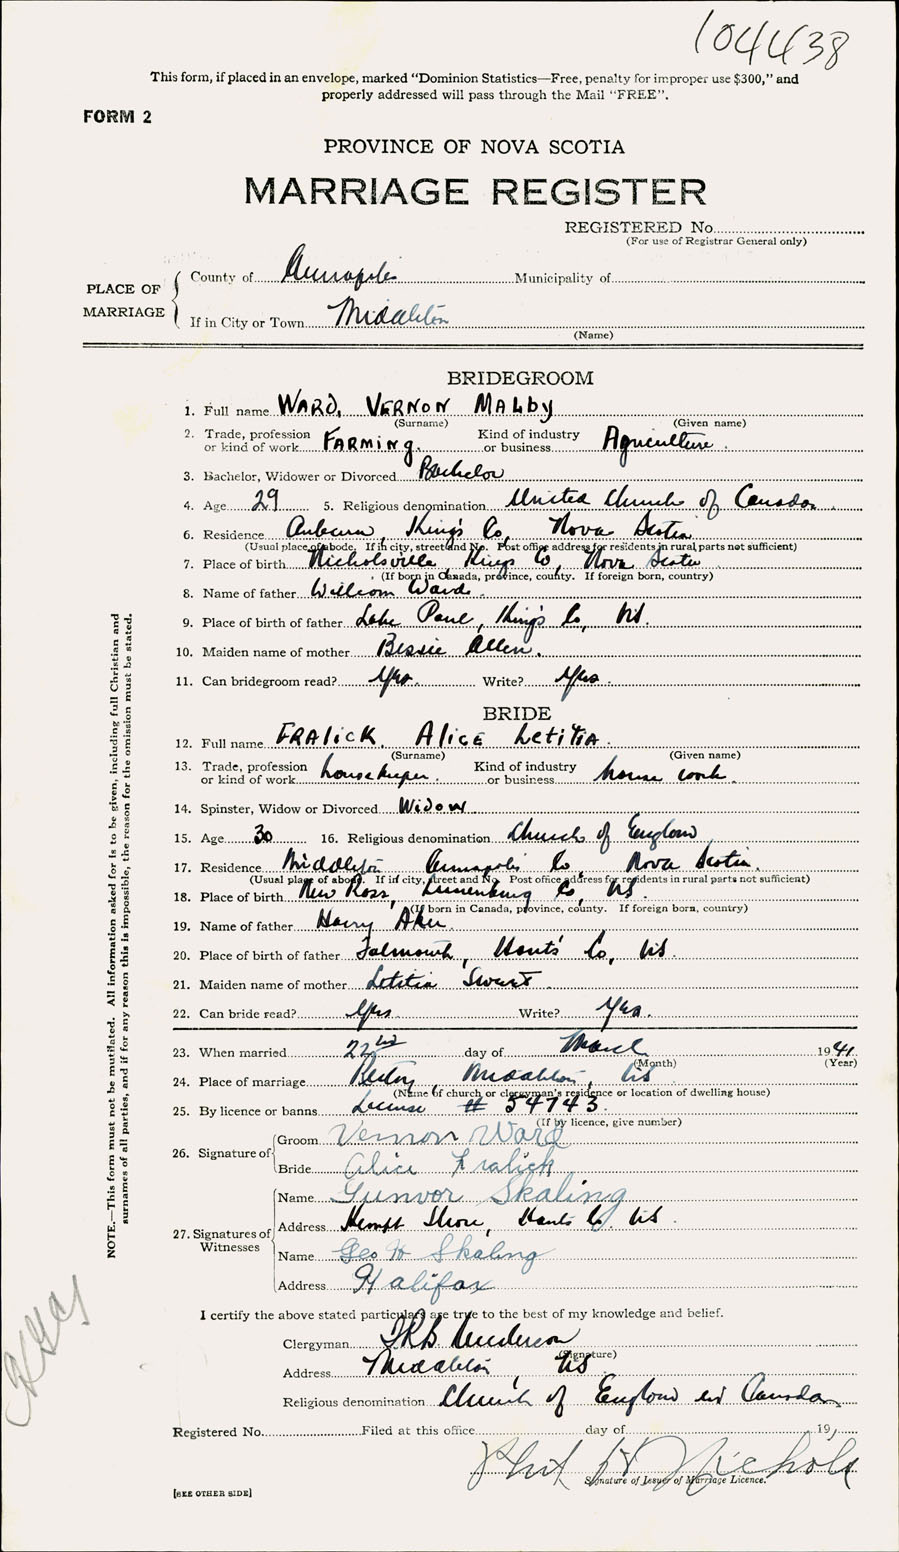 104438
This form, if placed in an envelope, marked "Dominion Statistics—Free, penalty for improper use $300," and
properly addressed will pass through the Mail "FREE".
FORM 2
PROVINCE OF NOVA SCOTIA
MARRIAGE REGISTER
REGISTERED No.
(For use of Registrar General only)
PLACE OF MARRIAGE
County of Annapolis Municipality of
If in City or Town Middleton
(Name)
BRIDEGROOM
1. Full name WARD, VERNON MALBY
(Surname) (Given name)
2. Trade, profession or kind of work FARMING. Kind of industry or business Agriculture.
3. Bachelor, Widower or Divorced Bachelor
4. Age 29 5. Religious denomination United Church of Canada
6. Residence Auburn, King's Co, Nova Scotia
(Usual place of abode. If in city, street and No. Post office address for residents in rural parts not sufficient)
7. Place of birth Nicholsville, Kings Co, Nova Scotia
(If born in Canada, province, county. If foreign born, country)
8. Name of father William Ward.
9. Place of birth of father Lake Paul, King's Co, NS.
10. Maiden name of mother Bessie Allen.
11. Can bridegroom read? Yes. Write? Yes.
BRIDE
12. Full name FRALICK, ALICE LETITIA.
(Surname) (Given name)
13. Trade, profession or kind of work housekeeper. Kind of industry or business house work.
14. Spinster, Widow or Divorced Widow.
15. Age 30 16. Religious denomination Church of England
17. Residence Middleton Annapolis Co, Nova Scotia.
(Usual place of abode. If in city, street and No. Post office address for residents in rural parts not sufficient)
18. Place of birth New Ross, Lunenburg Co, NS.
(If born in Canada, province, county. If foreign born, country)
19. Name of father Harry Aker.
20. Place of birth of father Falmouth, Hants' Co, NS.
21. Maiden name of mother Letitia
22. Can bride read? Yes. Write? Yes.
23. When married 22nd day of March 1941.
(Month) (Year)
24. Place of marriage Rectory, Middleton, NS
(Name of church or clergyman's residence or location of dwelling house)
25. By licence or banns License # 54743.
(If by licence, give number)
26. Signature of
Groom Vernon Ward
Bride Alice Fralick
27. Signatures of Witnesses
Name Gunvor Skaling
Address Kempt Shore, Hants Co, NS.
Name Geo H Skaling
Address Halifax
I certify the above stated particulars are true to the best of my knowledge and belief.
Clergyman
(Signature)
Address Middleton, NS
Religious denomination Church of England in Canada
Registered No. Filed at this office day of 19
Nichols
Signature of Issuer of Marriage Licence.
[SEE OTHER SIDE]
NOTE.—This form must not be mutilated. All information asked for is to be given, including full Christian and
surnames of all parties, and if for any reason this is impossible, the reason for the omission must be stated.